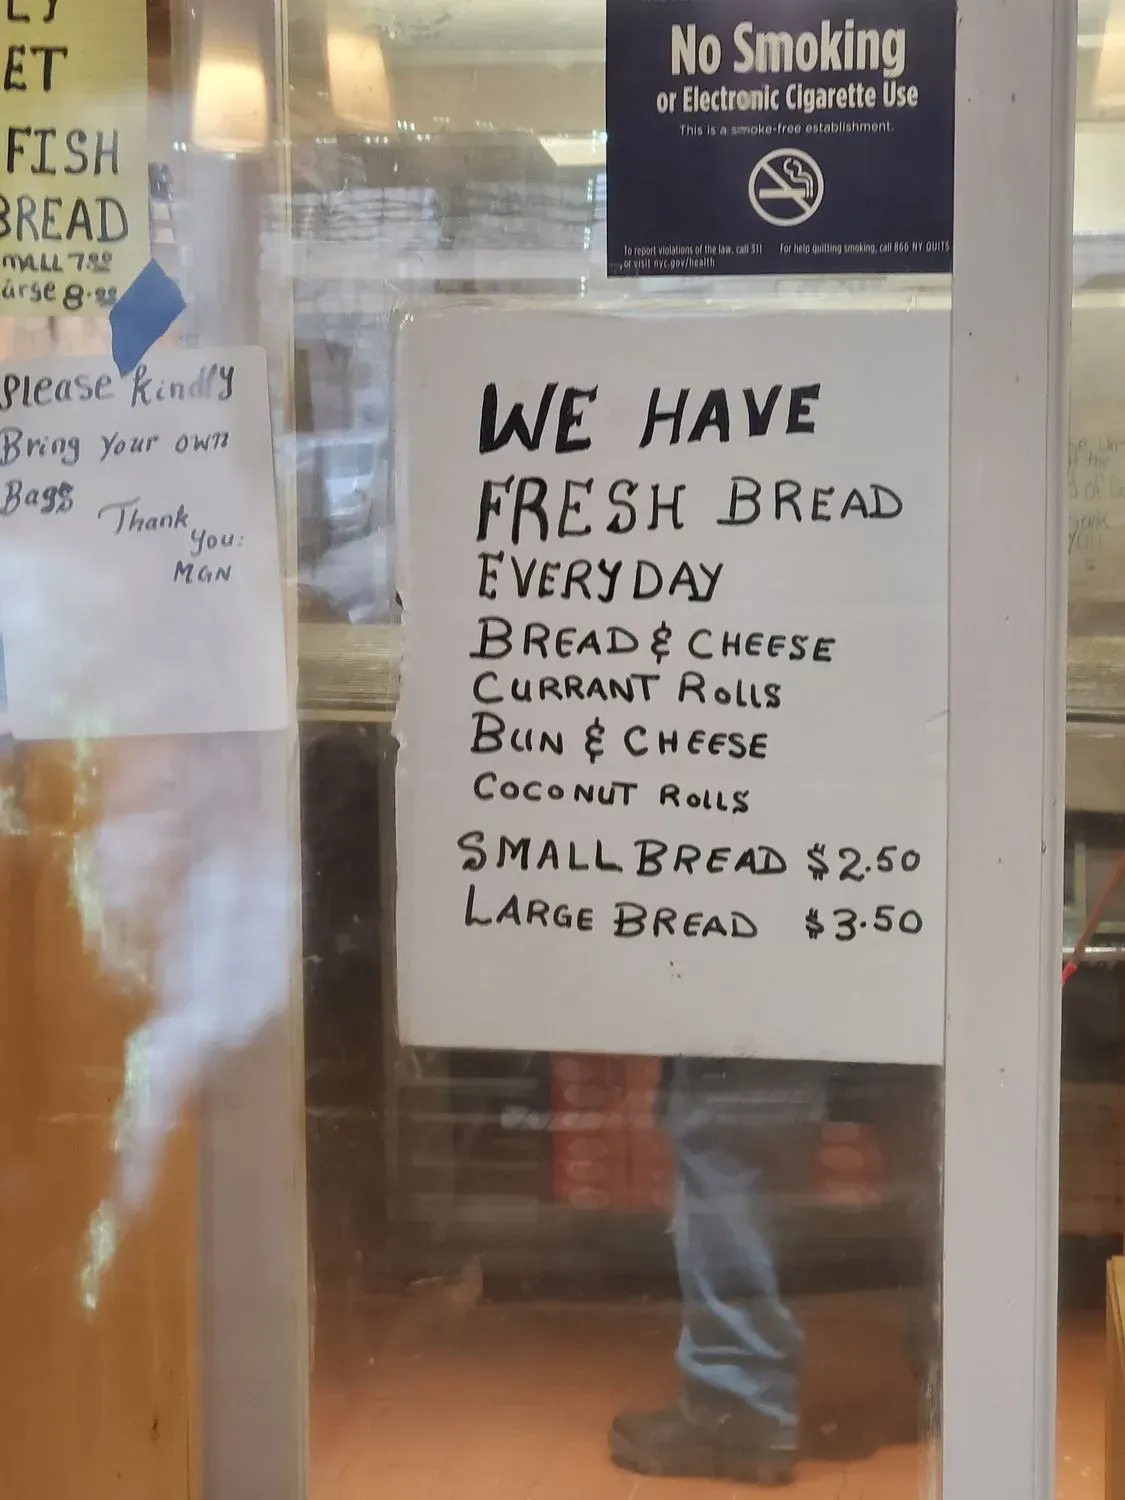 ET
FISH
BREAD
SMALL 7.00
Large 8.00
Please kindly
Bring your own
Bags
Thank
you:
MGN
No Smoking
or Electronic Cigarette Use
This is a smoke-free establishment.
To report violations of the law, call 311
or visit nyc.gov/health
For help quitting smoking, call 866 NY QUITS
WE HAVE
FRESH BREAD
EVERYDAY
BREAD & CHEESE
CURRANT ROLLS
BUN & CHEESE
COCONUT ROLLS
SMALL BREAD $2.50
LARGE BREAD $3.50